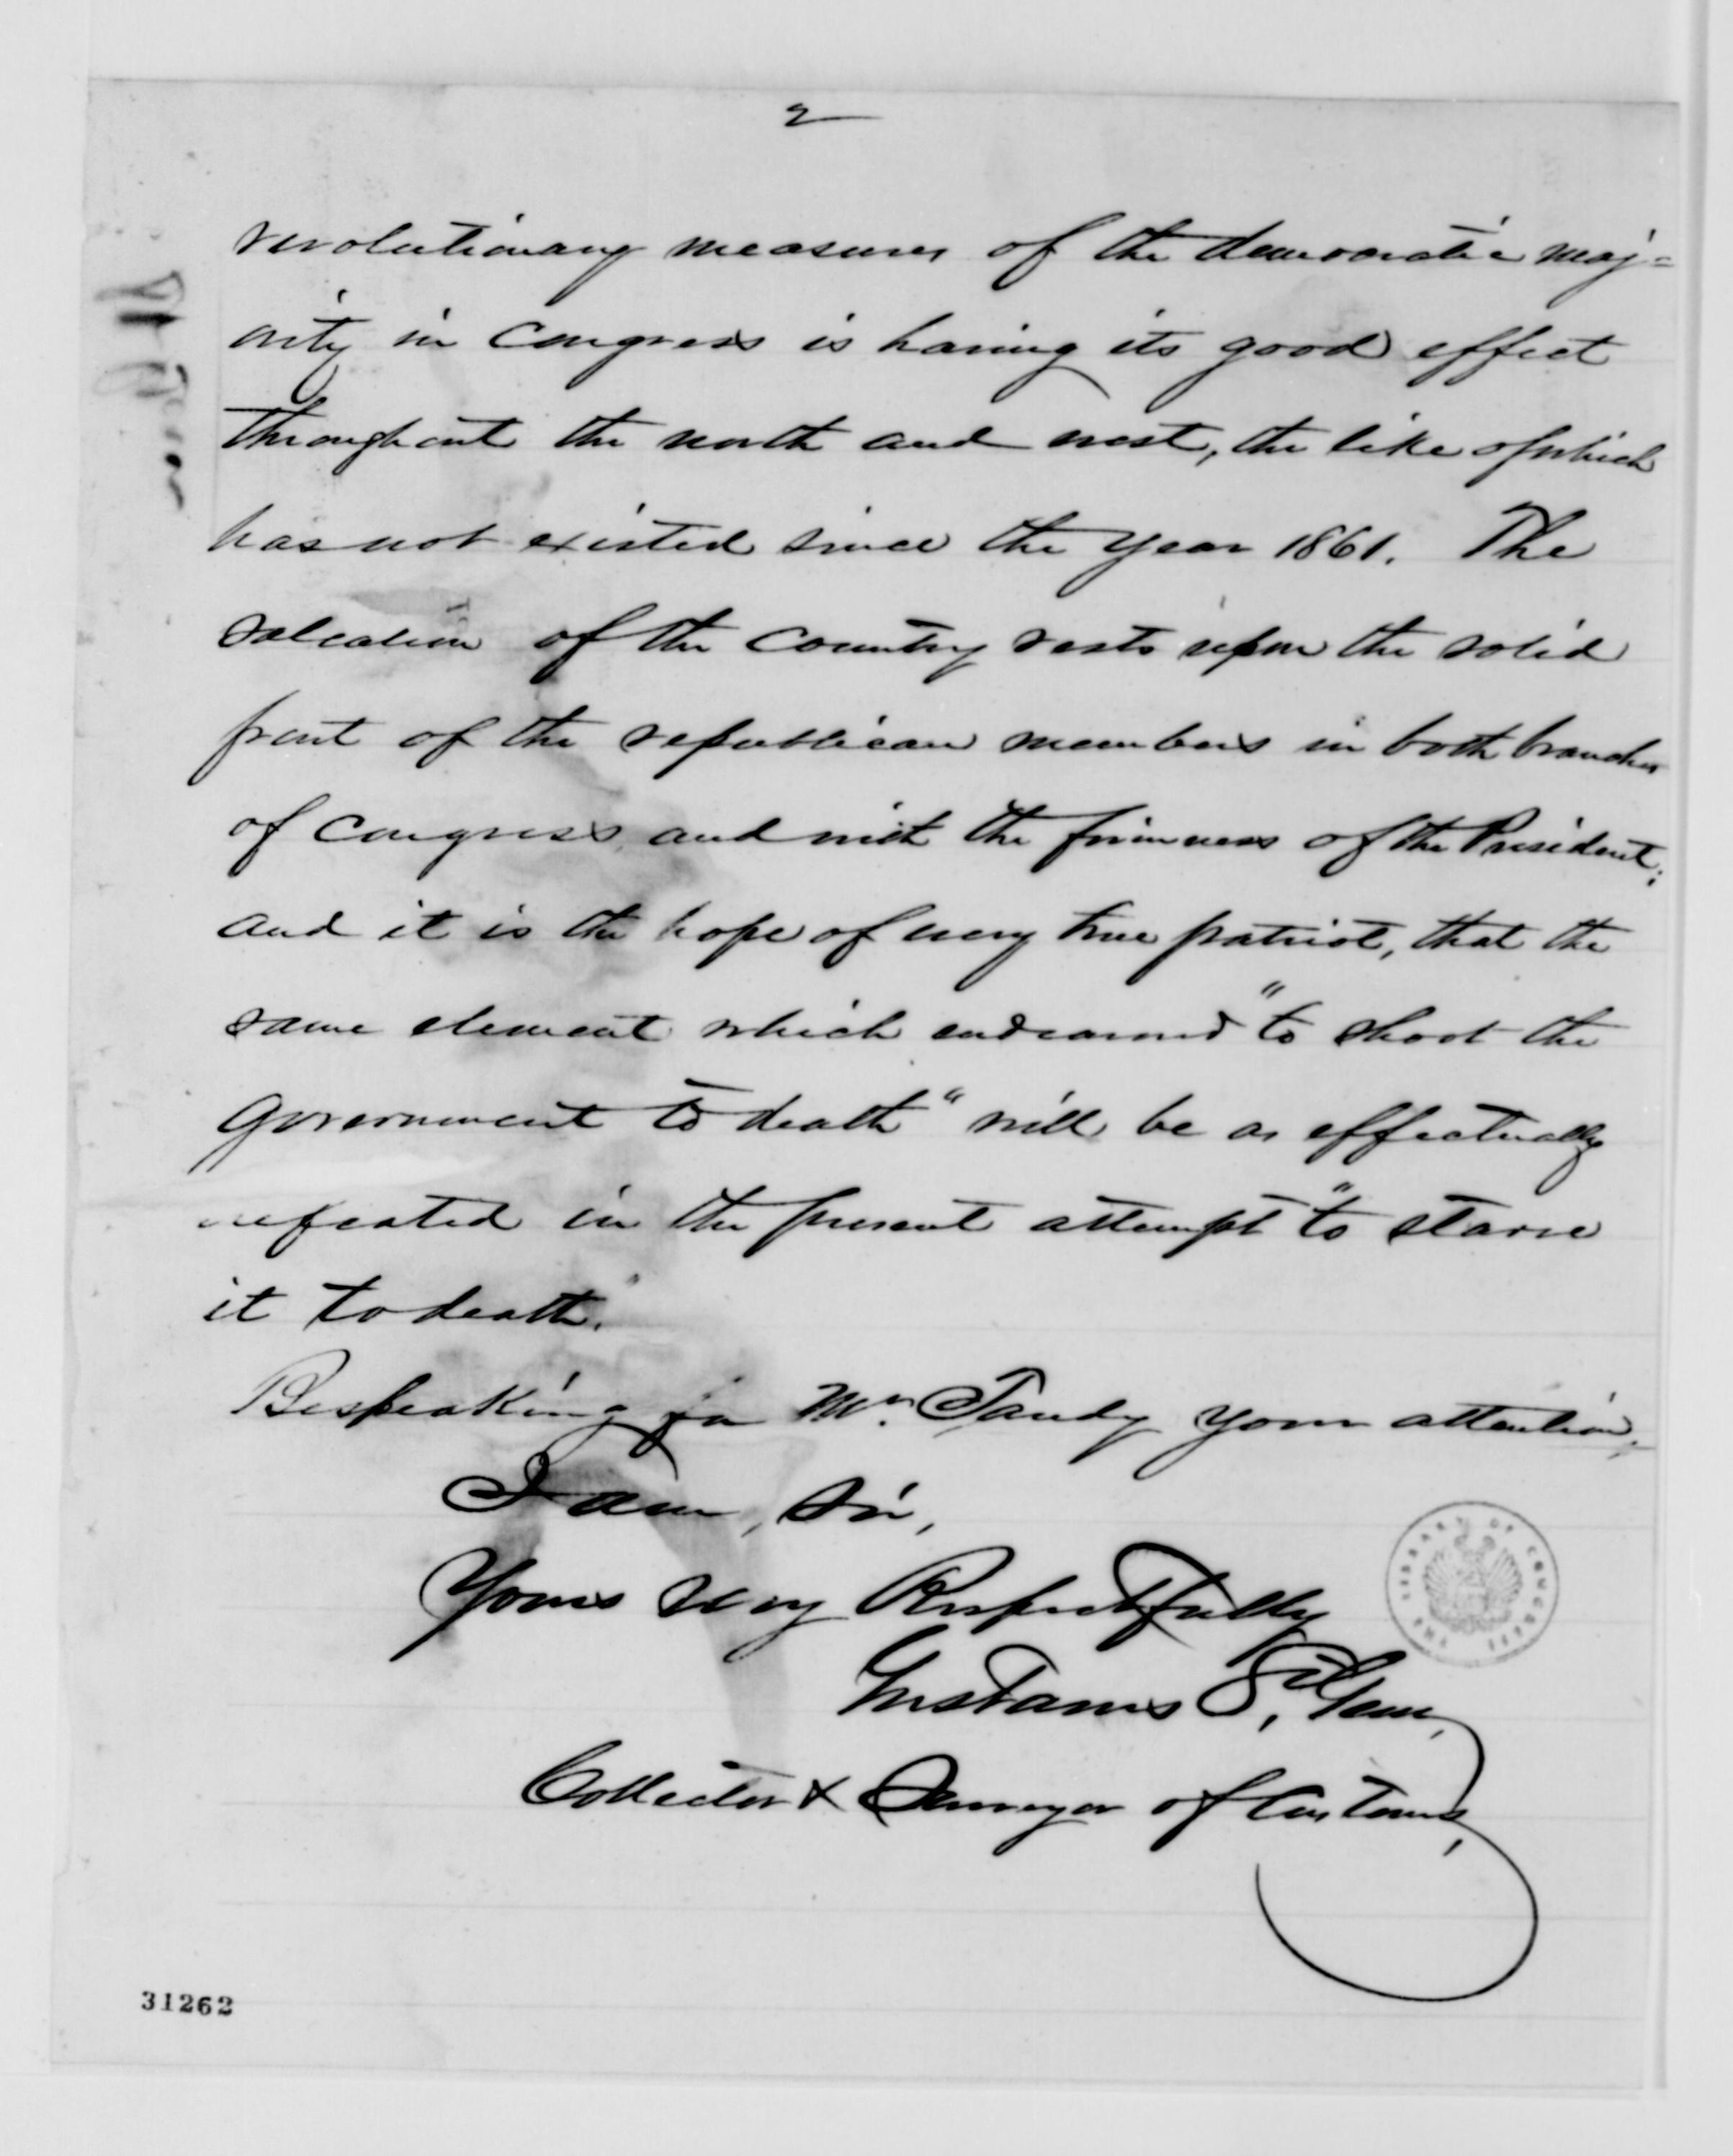 2
revolutionary measures of the democratic maj=
ority in Congress is having its good effect
throughout the north and west, the like of which
has not existed since the year 1861. The
salvation of the country rests upon the solid
front of the republican members in both branches
of Congress, and with the firmness of the President;
and it is the hope of every true patriot, that the
same element which endeavored "to shoot the
government to death" will be as effectually
defeated in the present attempt "to starve
it to death."
Bespeaking for Mr. Tandy your attention,
I am, Sir,
Yours very Respectfully
Gustavus
Collector & Surveyor of Customs,
THE LIBRARY OF CONGRESS
31262